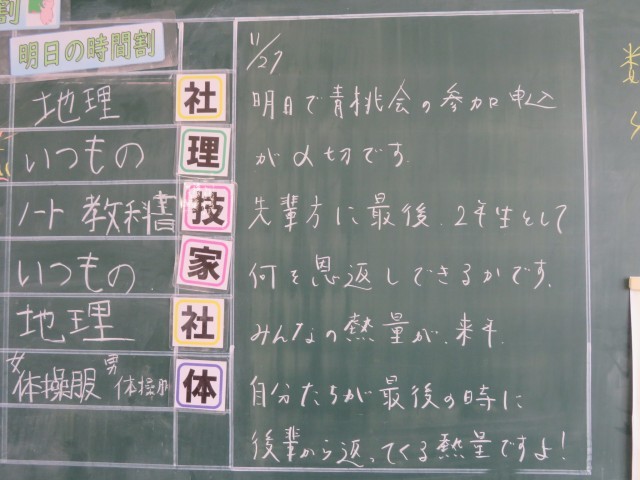 割
明日の時間割
地理 社
いつもの 理
ノート 教科書 技
いつもの 家
地理 社
女 体操服 男 体操服 体
11/27
明日で青挑会の参加申込
が〆切です。
先輩方に最後、2年生として
何を恩返しできるかです。
みんなの熱量が、来年、
自分たちが最後の時に
後輩から返ってくる熱量ですよ!